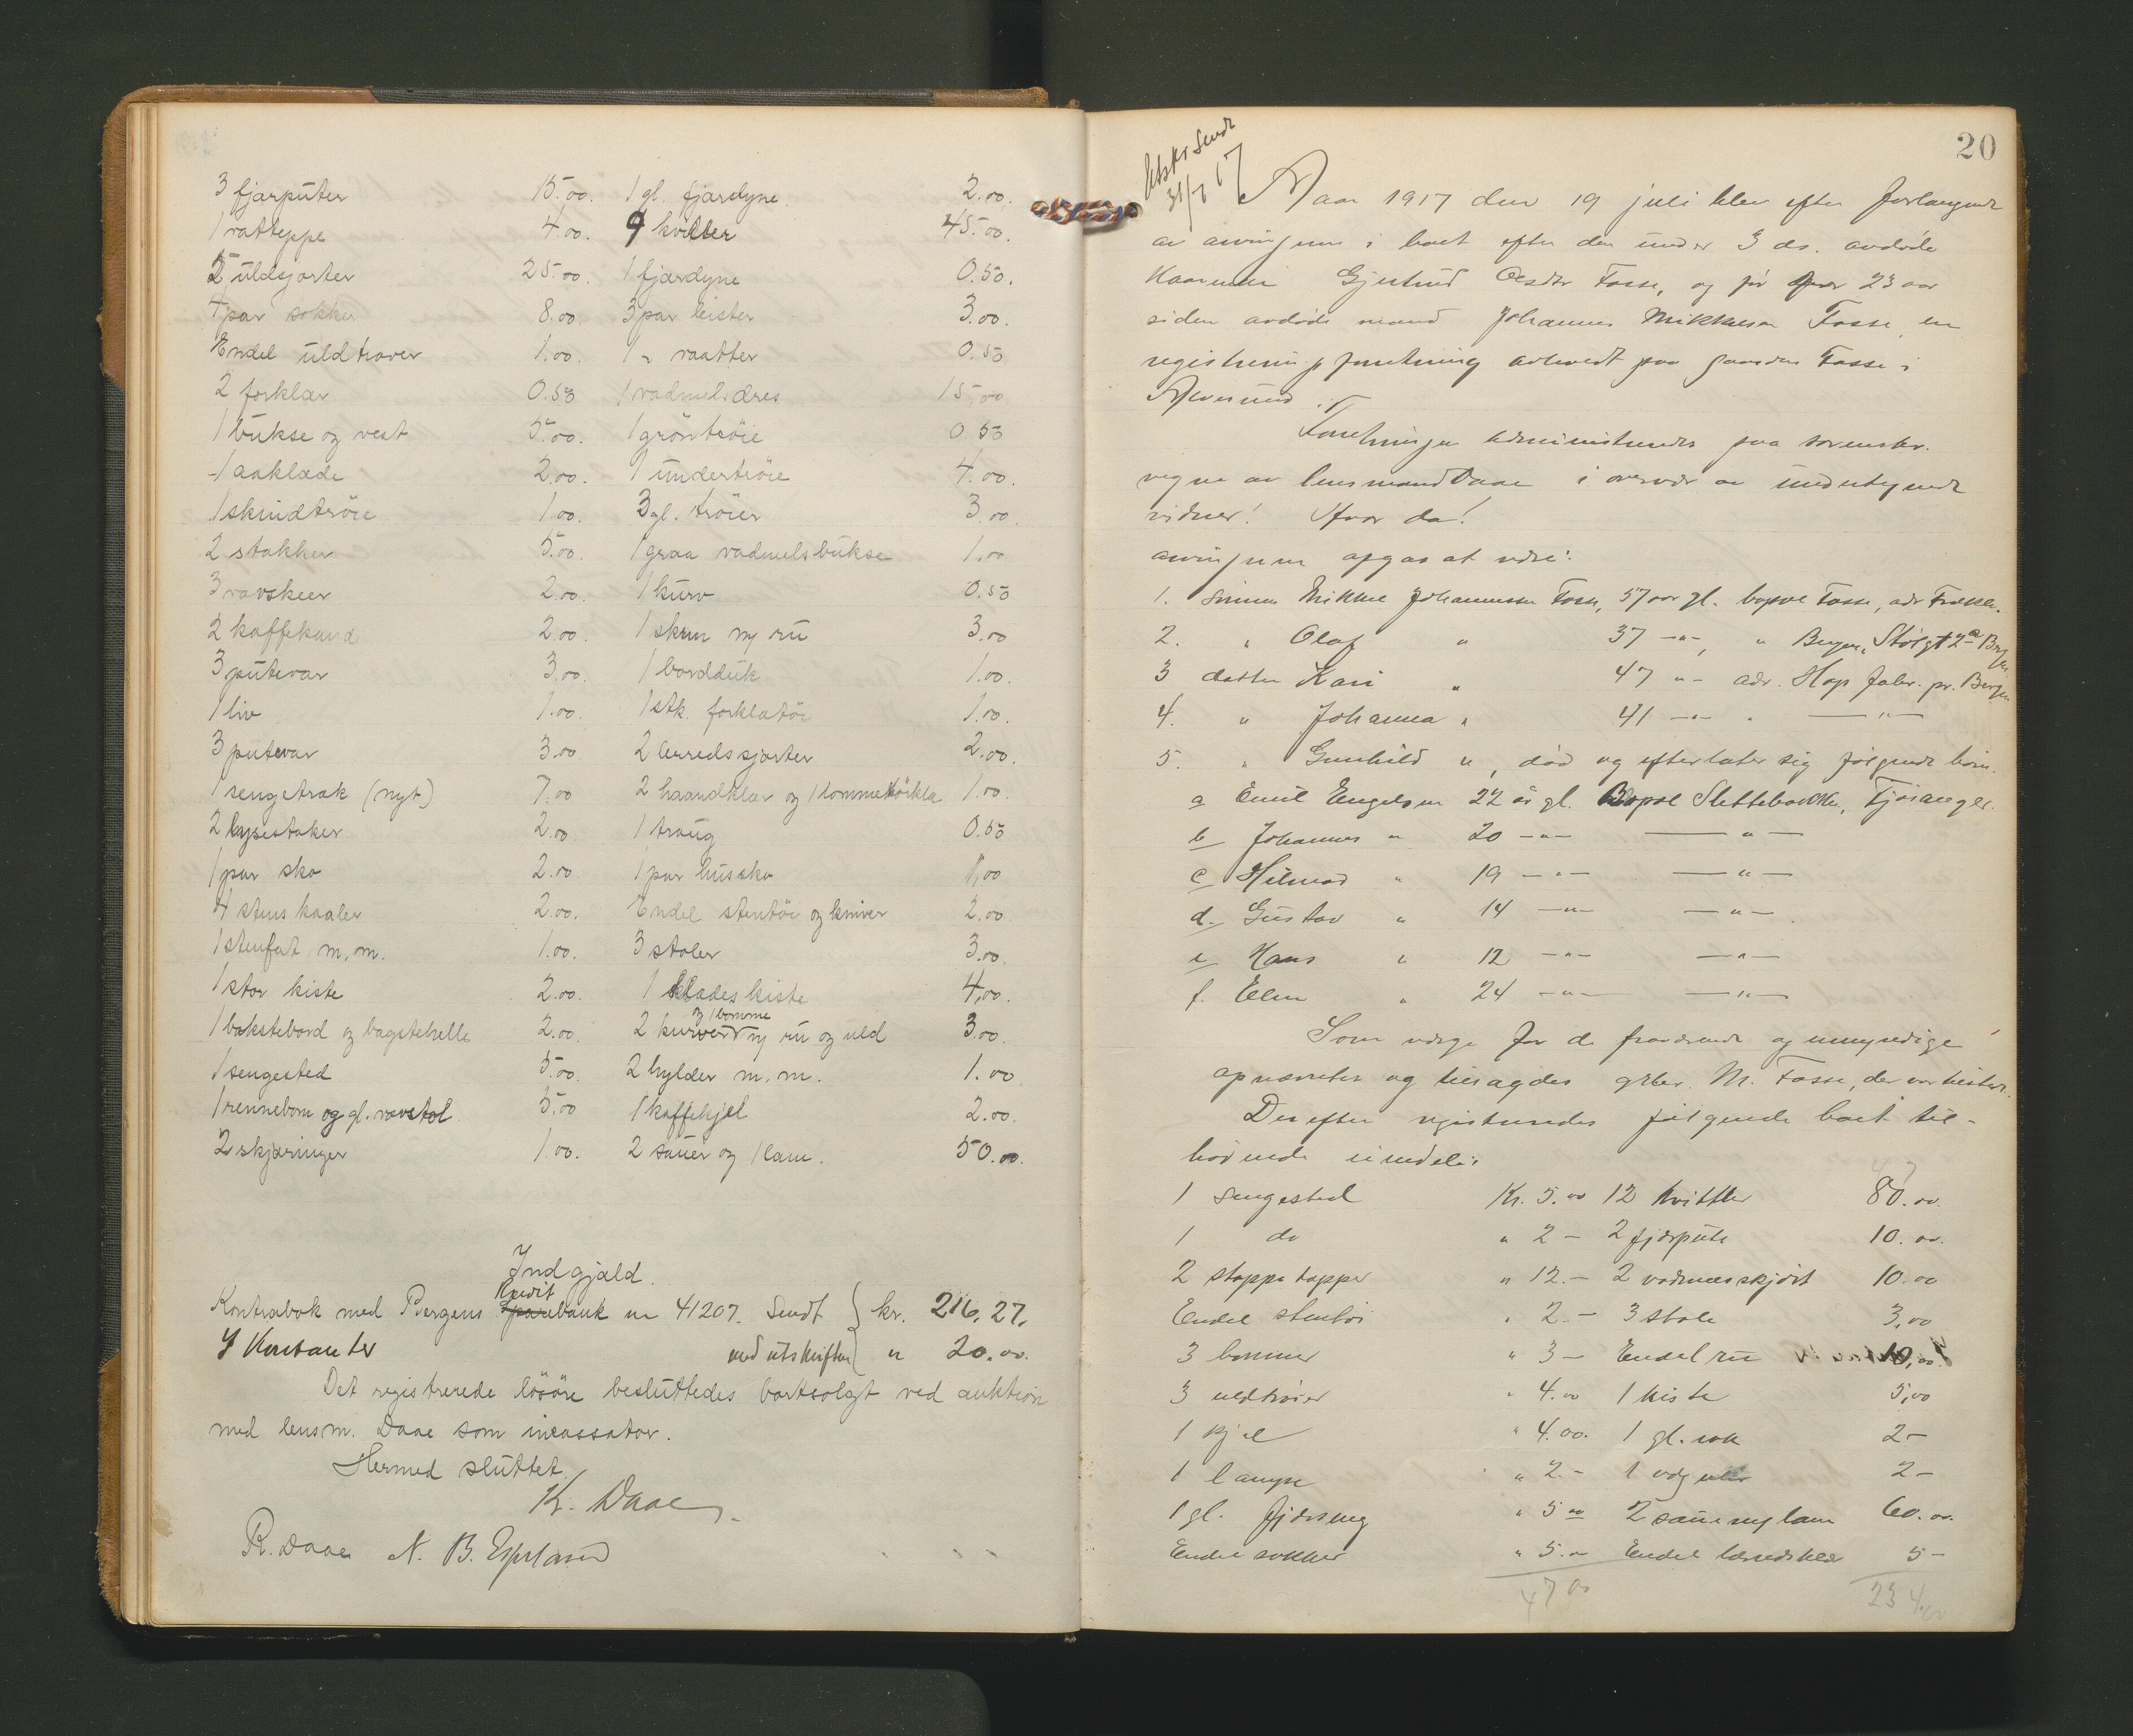 3 fjærputer 15.00. 1 gl. fjærdyne. 2.00.
1 vatteppe 4.00. 9 kvitler 45.00.
5 uldsjorter 25.00. 1 fjærdyne 0.50.
4 par sokker 8.00. 3 par leister 3.00.
Endel uldtraver 1.00. 1 " vaatter 0.50
2 forklær 0.50 1 vadmelsdres 15,00
1 bukse og vest 5.00. 1 gröntröie 0.50
1 aaklæde 2.00. 1 undertröie 4.00.
1 skindtröie 1.00. 3 gl. tröier 3.00.
2 stakker 5.00. 1 graa vadmelsbukse 1.00
3 vavskeer 2.00. 1 kurv 0.50
2 kaffekand 2.00. 1 skrin m/ ru 3.00
3 putevar 3.00. 1 bordduk 1.00.
1 liv 1.00. 1 stk. forklatöi 1.00.
3 putevar 3.00 2 lerredssjorter 2.00.
1 sengetræk (nyt) 7.00 2 haandklær og 1 lommetörklæ 1.00.
2 lysestaker 2.00 1 traug 0.50
1 par sko 2.00 1 par hussko 1,00
4 stens kaaler 2.00. Endel stentöi og kniver 2.00
1 stenfat m.m. 1.00. 3 stoler 3.00.
1 stor kiste 2.00. 1 klædeskiste 4,00.
og 1 bomme
1 bakstebord og bagstehelle 2.00. 2 kurver m/ ru og uld 3.00.
1 sengested 5.00. 2 hylder m.m. 1.00
1 rennebom og gl. vavstol 5.00 1 kaffekjel 2.00.
2 skjæringer 1.00. 2 sauer og 1 lam. 50.00.
Indgjæld.
Kredit
Kontrabok med Bergens Sparebank nr 41207. Sendt } kr. 216,27.
Kontanter med utskriften } " 20.00.
Det registrerede lösöre besluttedes bortsolgt ved auktion
med lensm. Daae som incassator.
Hermed sluttet.
K. Daae.
R. Daae N. B. Espeland
20
Utskr sendt
31/7 17
Aar 1917 den 19 juli blev efter forlangende
av arvingerne i boet efter den under 3 ds. avdöde
Kaarenke Gjertrud Olsdtr Fosse, og för 23 aar
siden avdöde mand Johannes Mikkelsen Fosse en
registreringsforretning avholdt paa gaarden Fosse i
Alversund.
Forretningen administreredes paa sorenskr.
vegne av lensmand Daae i overvær av undertegnede
vidner! Hvor da!
arvingerne opgaes at være:
1. Sönnen Mikkel Johannessen Fosse, 57 aar gl. bopæl Fosse, adr Frekh.
2. " Olaf " 37 -"-, " Bergen, Stölgt 2a Bergen
3 datter Kari " 47 "- adr. Hop faber. pr. Bergen
4. " Johanna " 41 -"- " -"-
5. " Gunhild ", död og efterlater sig fölgende börn.
a Emil Engelsen 22 år gl. Bopæl Slettebakken, Fjösanger.
b Johannes " 20 -"- -"-
c Hilmar " 19 -"- -"-
d. Gustav " 14 -"- -"-
e Hans " 12 -"- -"-
f. Elen " 24 -"- -"-
Som værge for de fraværende og umyndige
opnævntes og tilsagdes grbr. M. Fosse, der var tilstede.
Derefter registreredes fölgende boet til-
hörende eiendele:
1 Sengested Kr. 5.00 12 Kvitler 80.00.
1 do " 2 - 2 fjærpute 10.00.
2 stoppe tepper " 12. - 2 vadmelsskjört 10.00
Endel stentöi " 2. - 3 stole 3,00
3 bommer " 3 - Endel ru 10,00.
3 uldtröier " 4.00 1 kiste 5,00
1 kjel " 4.00. 1 gl. rok 2 -
1 lampe " 2 - 1 vægur 2 -
1 gl. fjærseng " 5 00 2 sauer m/ lam 60.00.
Endel sokker " 5. - Endel lærredsklær 5 -
47 00 234,00